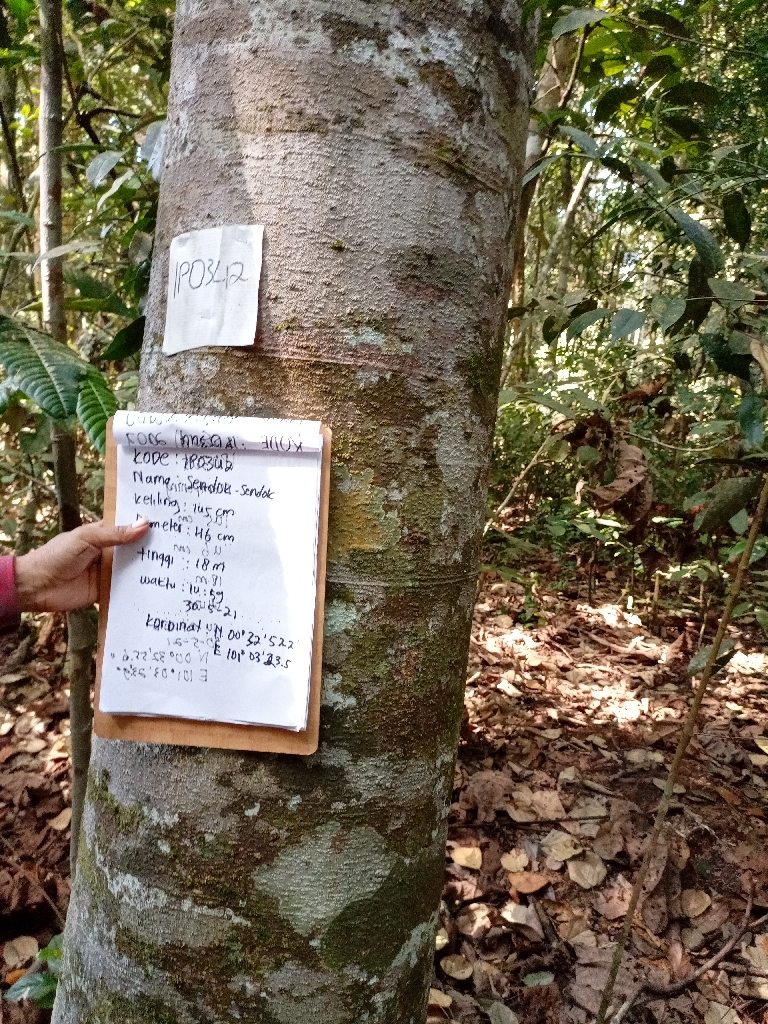 1P03L12
KODE : 1P03L12
Nama : Sendok-Sendok
Keliling : 145 cm
Diameter : 46 cm
tinggi : 18 m
waktu : 10 : 59
30-5-21
Kordinat : N 00°32'52.2
E 101°03'23.5